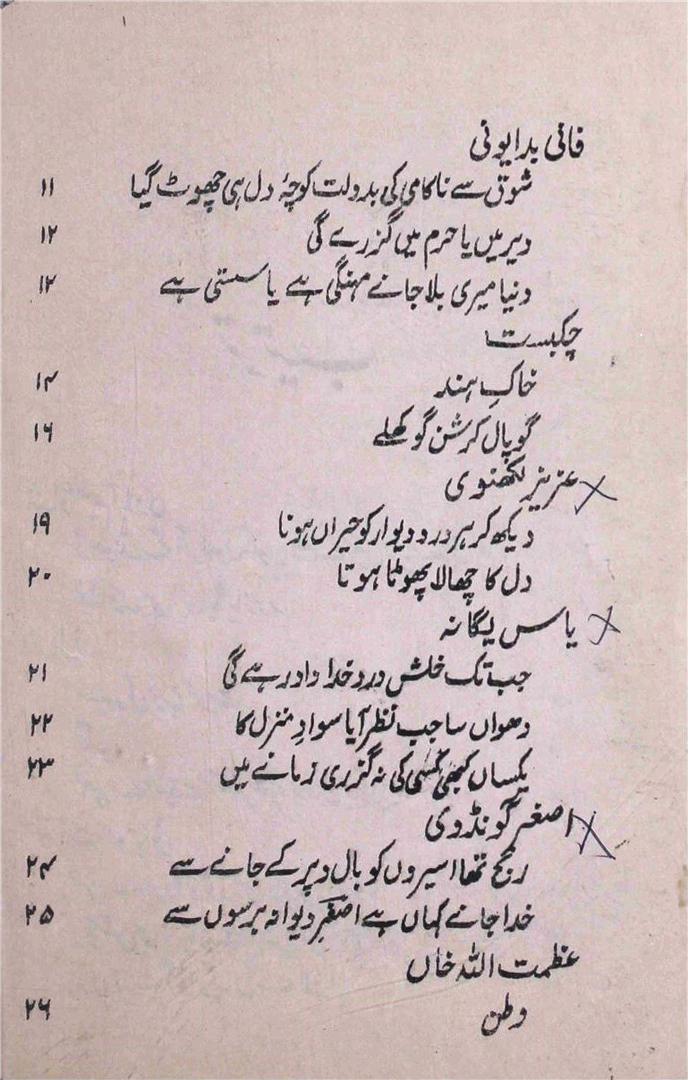 فانی بدایونی
شوق سے ناکامی کی بدولت کوچۂ دل ہی چھوٹ گیا ۱۱
دیر میں یا حرم میں گزرے گی ۱۲
دنیا میری بلا جانے مہنگی ہے یا سستی ہے ۱۲
چکبست
خاکِ ہند ۱۴
گوپال کرشن گوکھلے ۱۶
عزیز لکھنوی
دیکھ کر ہر در و دیوار کو حیراں ہونا ۱۹
دل کا چھالا پھوٹا ہوتا ۲۰
یاس یگانہ
جب تک خلش درد خدا داد رہے گی ۲۱
دھواں سا جب نظر آیا سوادِ منزل کا ۲۲
یکساں کبھی کسی کی نہ گزری زمانے میں ۲۳
اصغر گونڈوی
رنج تھا اسیروں کو بال و پر کے جانے سے ۲۴
خدا جانے کہاں ہے اصغرؔ دیوانہ برسوں سے ۲۵
عظمت اللہ خاں
وطن ۲۶